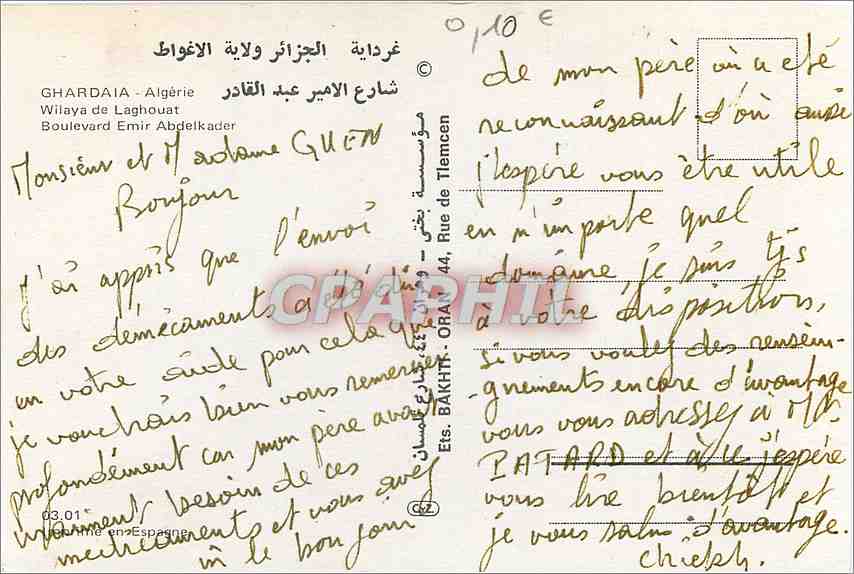 0,10 €
غرداية الجزائر ولاية الاغواط
شارع الامير عبد القادر
GHARDAIA - Algérie
Wilaya de Laghouat
Boulevard Emir Abdelkader
Monsieur et Madame GUEN
Bonjour
J'ai appris que l'envoi
des démécaments a été dû
en votre aide pour cela que
je vouchrais bien vous remercier
profondément car mon père avait
infiniment besoin de ces
médicaments et vous avez
le bonjour
03.01
Imprimé en Espagne
©
مؤسسة بختي - وهران ٤٤، شارع تلمسان
Ets. BAKHTI - ORAN 44, Rue de Tlemcen
CYZ
de mon père où a été
reconnaissant d'où aussi
j'espère vous être utile
en n'importe quel
domaine, je suis tjs
à votre disposition,
si vous voulez des rensei-
gnements encore d'avantage
vous vous adressez à Mr
PATARD et à ce j'espère
vous lire bientôt et
je vous salue d'avantage.
Chiekh.
CPAPHIL